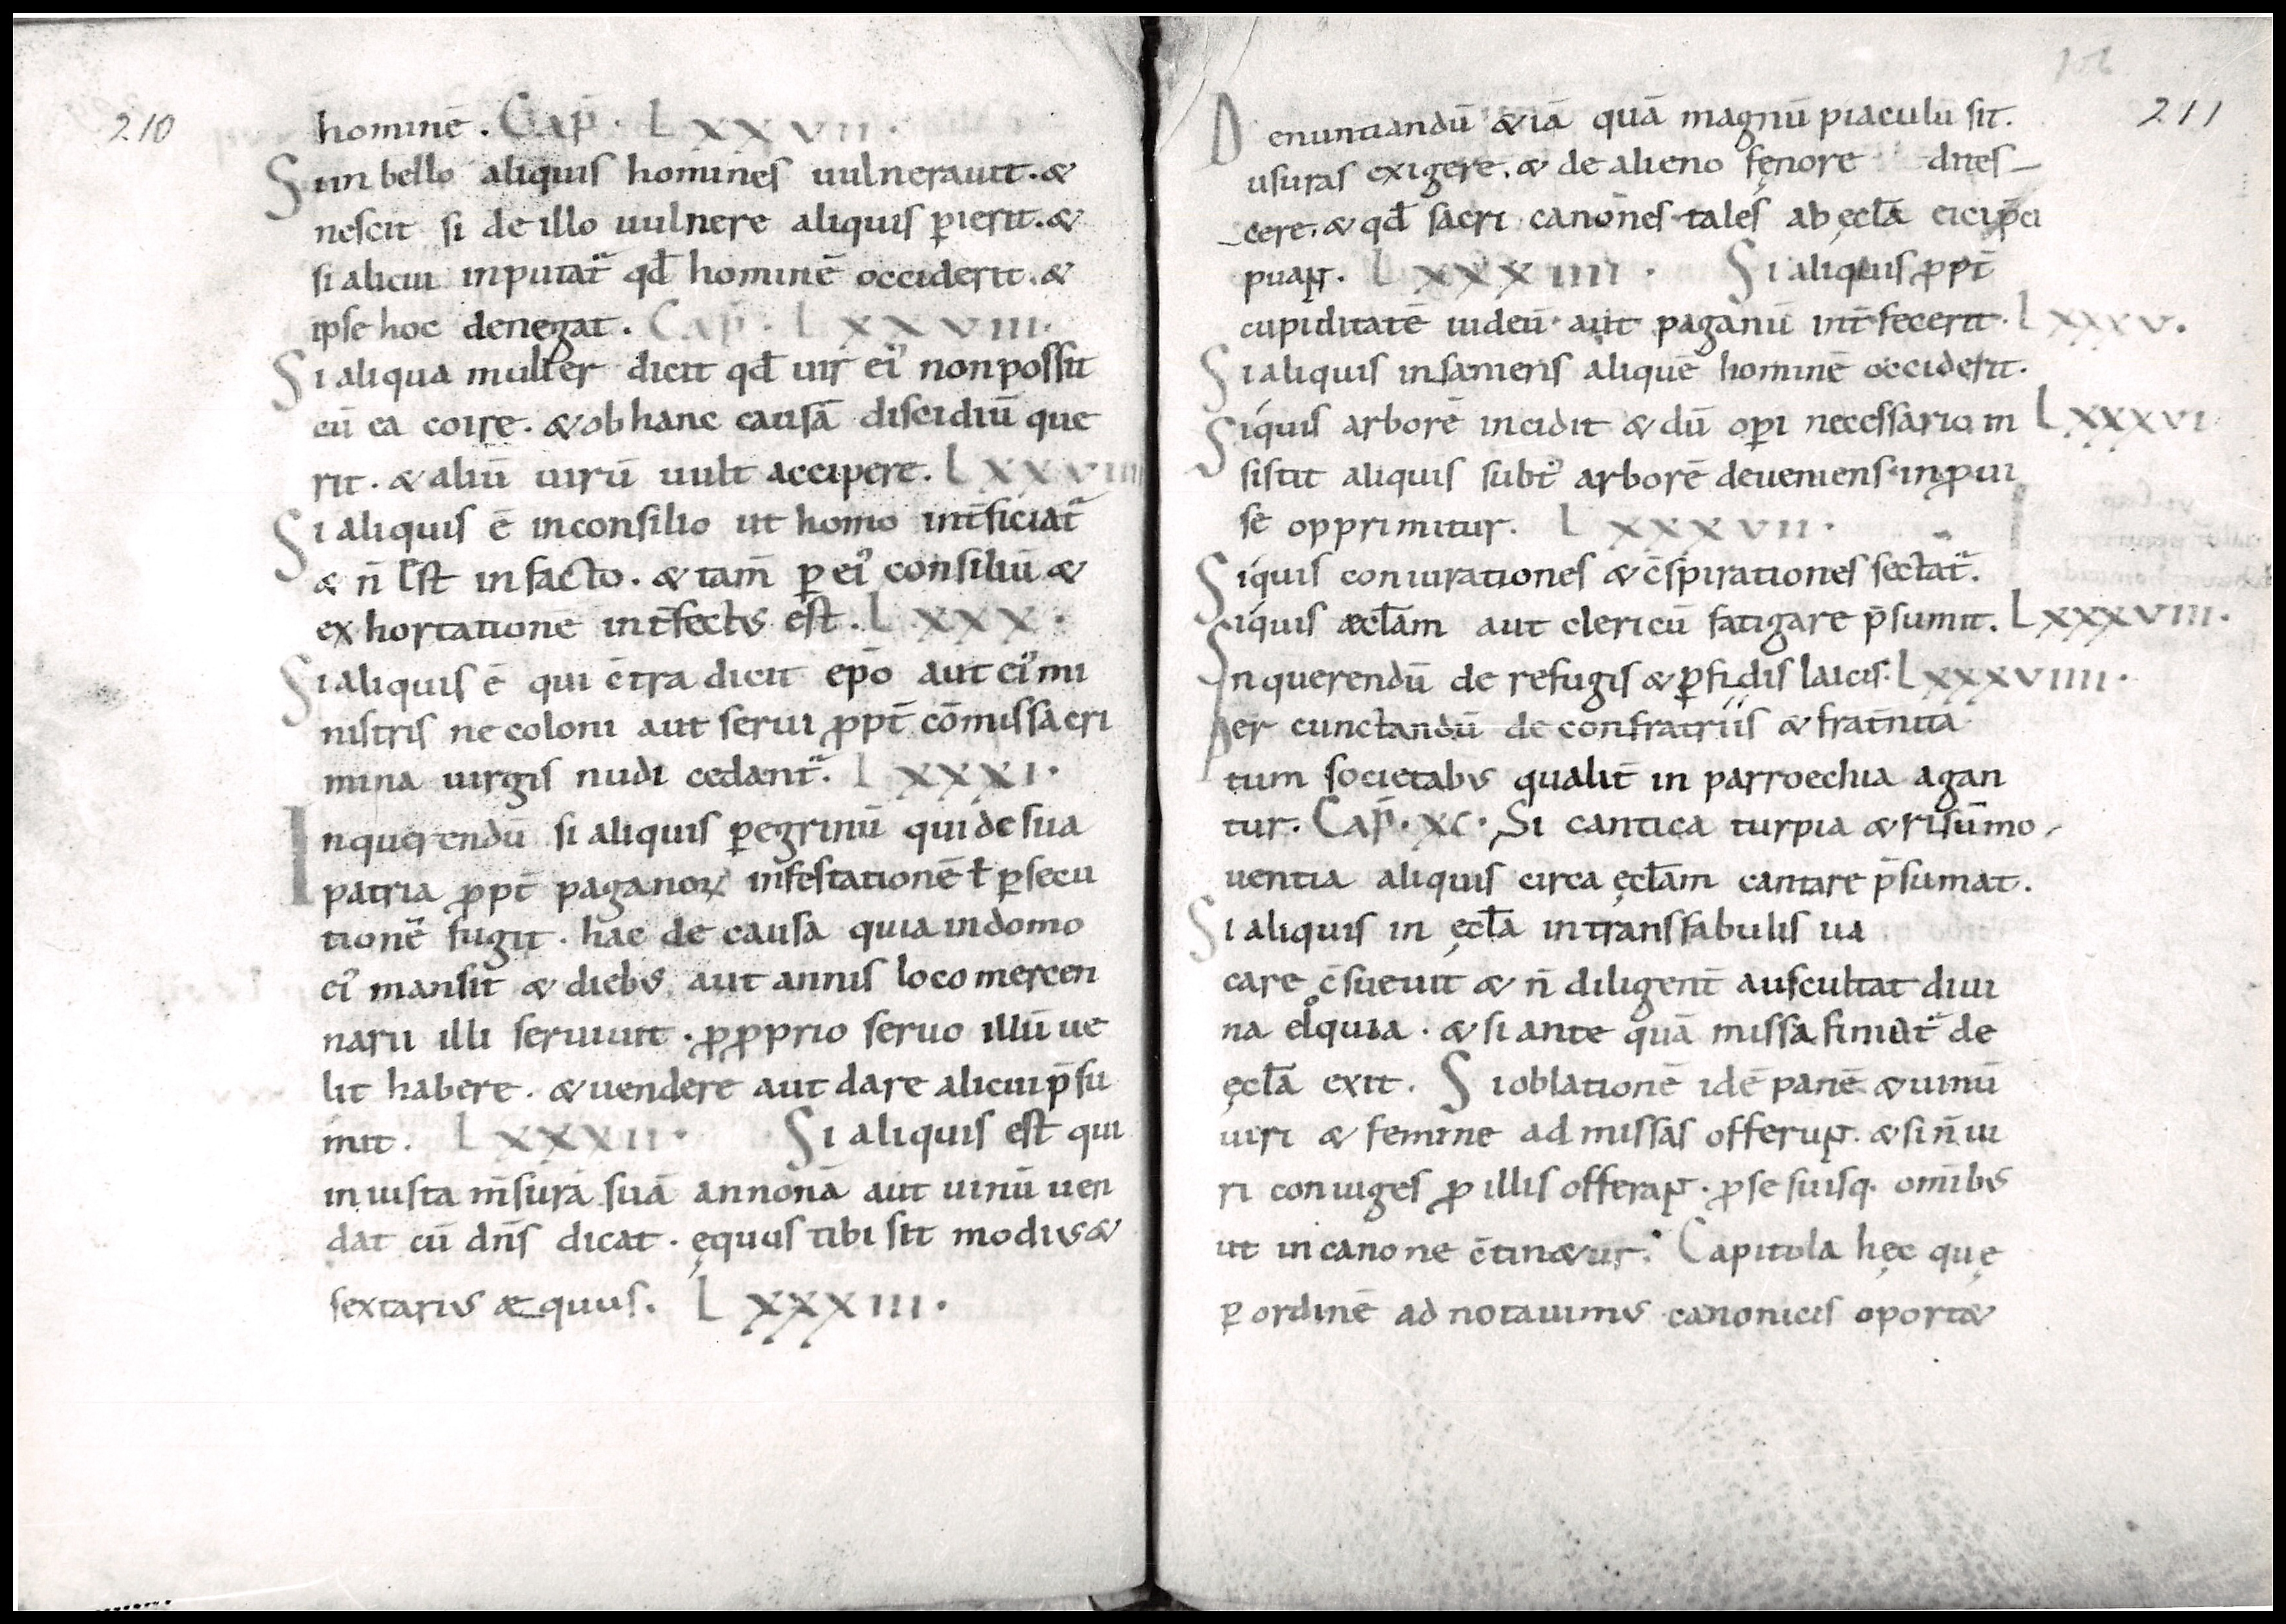 210
hominē. Cap̄. LXXVII.
Si in bello aliquis homines uulnerauit. &
nescit si de illo uulnere aliquis ꝑierit. &
si alicui inputat᷑ qd̄ hominē occiderit. &
ipse hoc denegat. Cap̄. LXXVIII.
Si aliqua mulier dicit qd̄ uir ei᾽ non possit
cū ea coire. & ob hanc causā discidiū que
rit. & aliū uirū uult accipere. LXXVIIII
Si aliquis ē in consilio ut homo int̄ficiat᷑
& n̄ est in facto. & tam̄ ꝑ ei᾽ consiliū &
ex hortationē int̄fectus est. LXXX.
Si aliquis ē qui c̄tra dicit ep̄o aut ei᾽ mi
nistris ne coloni aut serui ꝓpt̄ cōmissa cri
mina uirgis nudi cedant᷑. LXXXI.
Inquerendū si aliquis ꝑegrinū qui de sua
patria ꝓpt̄ paganoꝝ infestationē ł ꝑsecu
tionē fugit. hac de causa quia in domo
ei᾽ mansit & diebus aut annis loco mercen
narii illi seruiuit. ꝓ ꝓprio seruo illū ue
lit habere. & uendere aut dare alicui p̄su
mit. LXXXII. Si aliquis est qui
iniusta m̄surā suā annonā aut uinū uen
dat cū dn̄s dicat. ęquus tibi sit modius &
sextarius æquus. LXXXIII.
211
Denuntiandū &iā quā magnū piaculū sit.
usuras exigere. & de alieno fęnore dites
cere. & qd̄ sacri canones tales ab ęcl̄a eici p̄ci
piunt. LXXXIIII. Si aliquis ꝓpt̄
cupiditatē iudeū aut paganū int̄fecerit. LXXXV.
Si aliquis insaniens aliquē hominē occiderit.
Siquis arborē incidit & dū oꝑi necessario in LXXXVI
sistit aliquis subt᾽ arborē deueniens inꝓui
se opprimitur. LXXXVII.
Siquis coniurationes & c̄spirationes sectat᷑.
Siquis æcl̄am aut clericū fatigare p̄sumit. LXXXVIII.
Inquerendū de refugis & ꝑfidis laicis. LXXXVIIII.
Per cunctandū de confratriis & frat̄nita
tum societabus qualit̄ in parroechia agan
tur. Cap̄. XC. Si cantica turpia & risū mo
uentia aliquis circa ęcl̄am cantare p̄sumat.
Si aliquis in ęcl̄a intrans fabulis ua
care c̄sueuit & n̄ diligent̄ auscultat diui
na eloquia. & si ante quā missa finiat᷑ de
ęcl̄a exit. Si oblationē idē panē & uinū
uiri & femine ad missas offerunt. & si n̄ ui
ri coniuges ꝓ illis offerant. ꝓ se suisq. omībus
ut in canone c̄tin&ur. Capitula hęc quę
ꝑ ordinē ad notauimus canonicis oport&